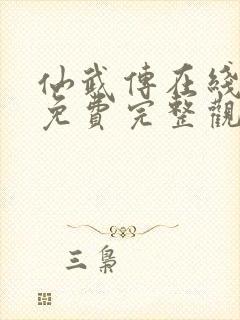 仙武傳在綫
免費完整觀
三梟